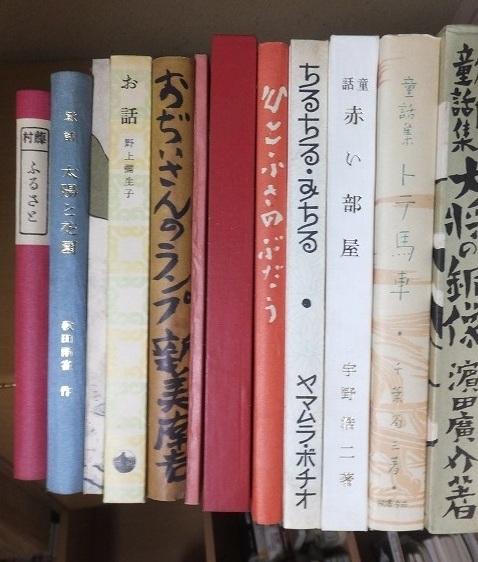 藤村
ふるさと
太陽と花園
秋田雨雀 作
お話
野上彌生子
おぢいさんのランプ 新美南吉
ひとふさのぶだう
ちるちる・みちる
ヤマムラ・ボチオ
童話
赤い部屋
宇野浩二著
童話集
トテ馬車
千葉省三著
童話集
大将の銅像
濱田廣介著